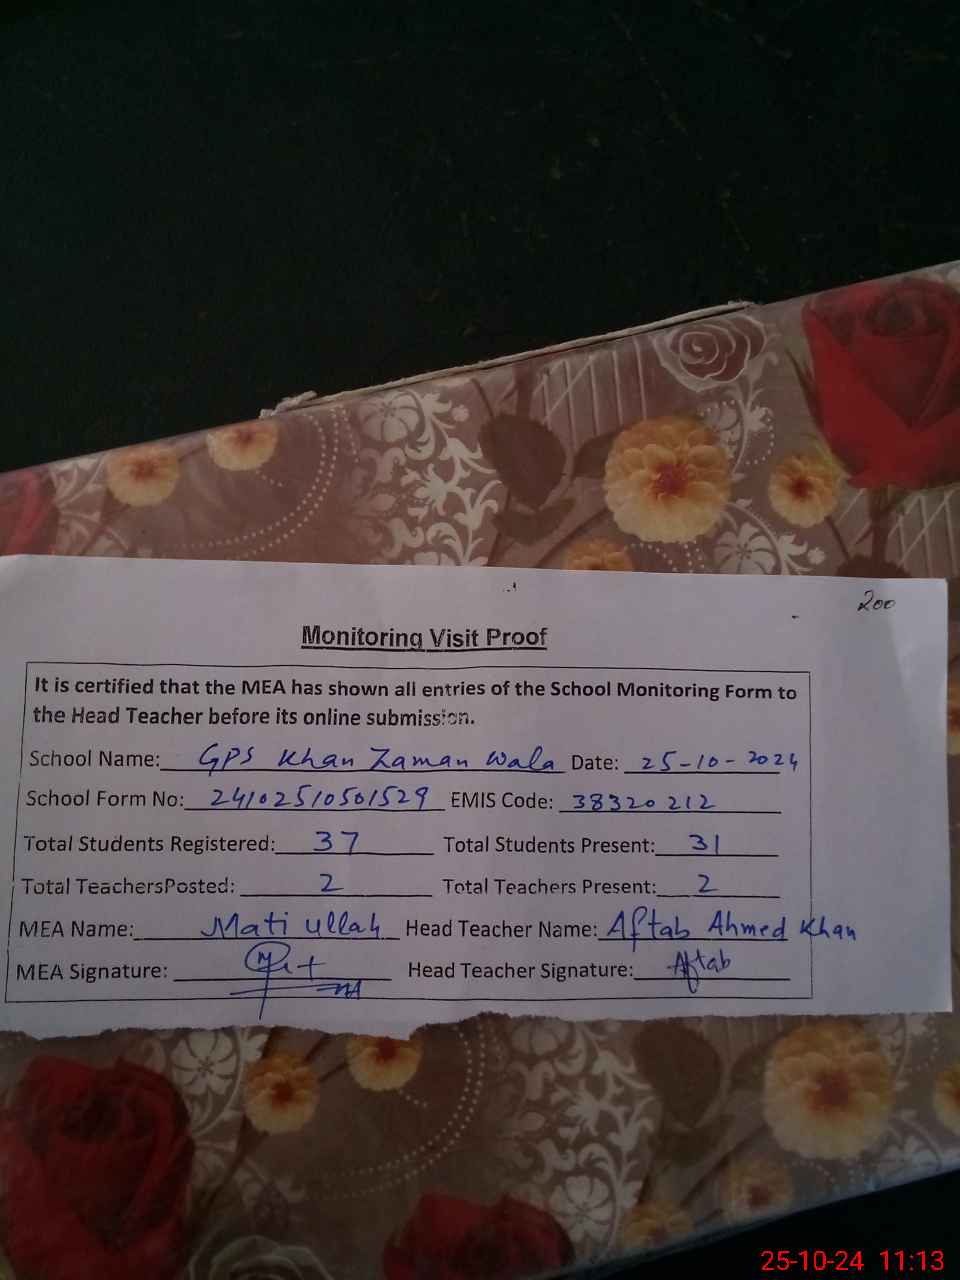 200
Monitoring Visit Proof
It is certified that the MEA has shown all entries of the School Monitoring Form to
the Head Teacher before its online submission.
School Name: GPS Khan Zaman Wala Date: 25-10-2024
School Form No: 24102510501529 EMIS Code: 38320212
Total Students Registered: 37 Total Students Present: 31
Total TeachersPosted: 2 Total Teachers Present: 2
MEA Name: Mati ullah Head Teacher Name: Aftab Ahmed Khan
MEA Signature: Head Teacher Signature: Aftab
25-10-24 11:13